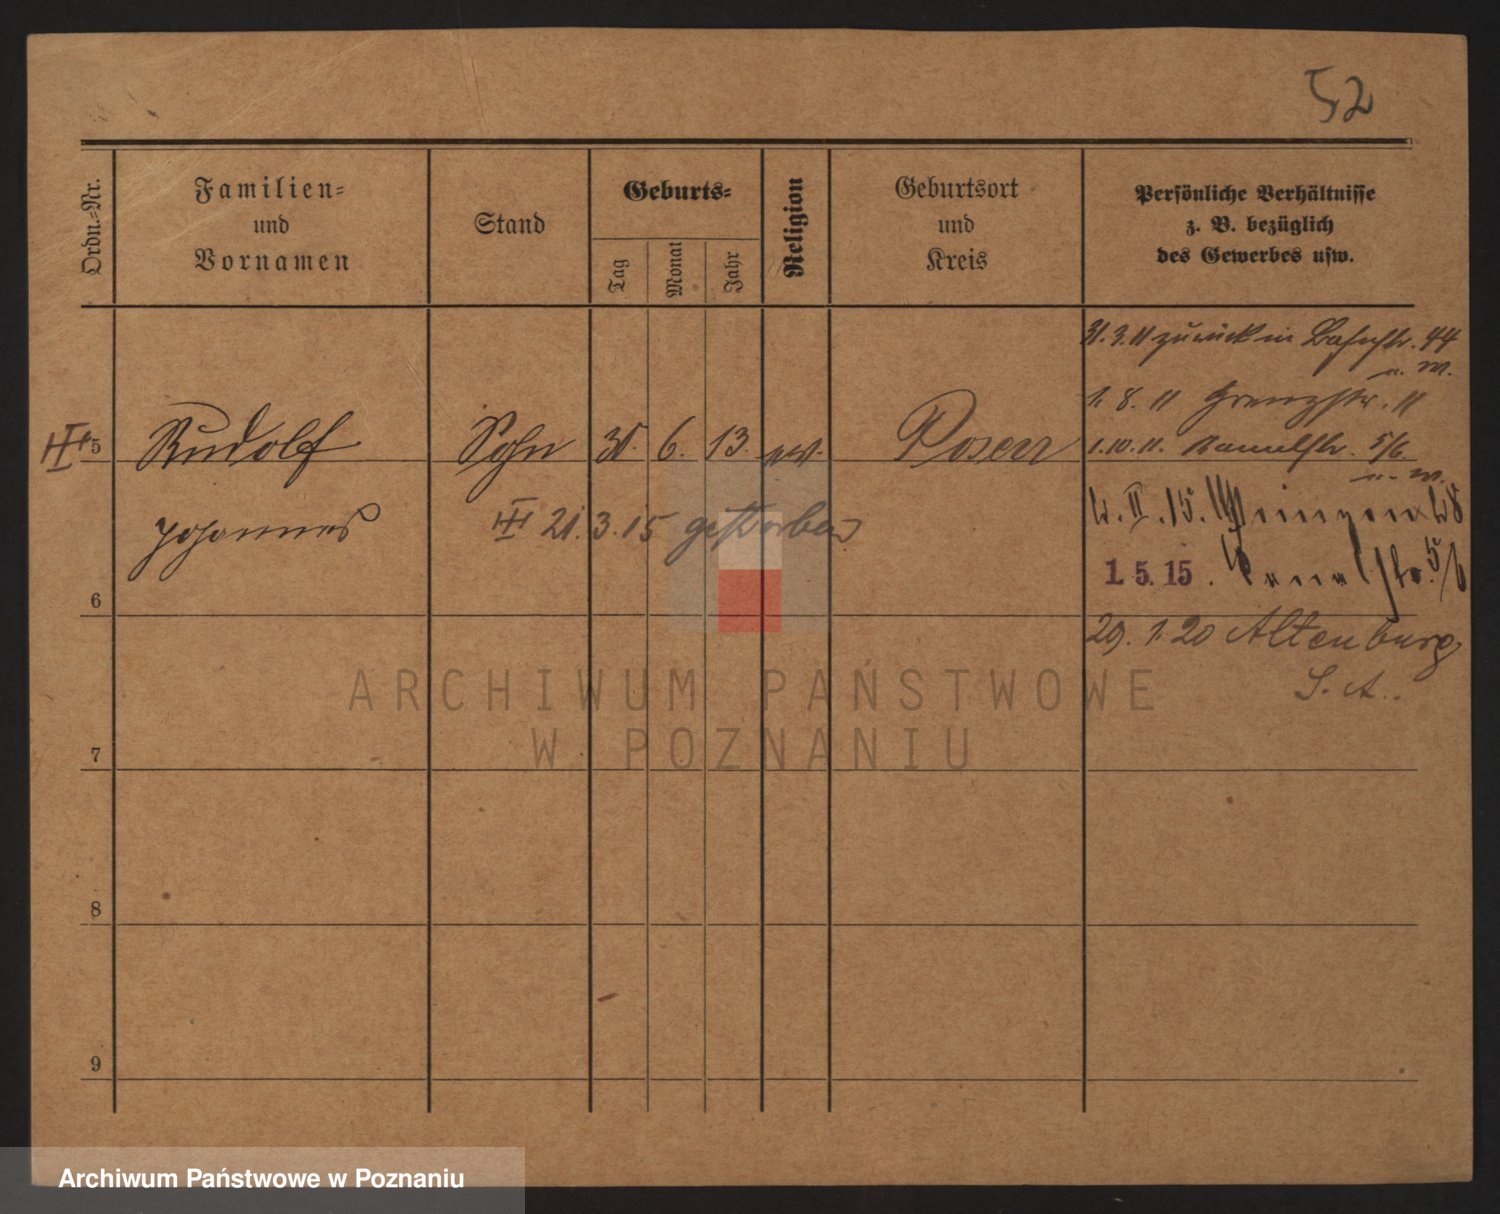 52
Ordn.=Nr.
Familien=
und
Vornamen
Stand
Geburts=
Tag
Monat
Jahr
Religion
Geburtsort
und
Kreis
Persönliche Verhältnisse
z. B. bezüglich
des Gewerbes usw.
31. 3. 11 zurück in Bahnstr. 44
u. W.
1. 8. 11 Grenzstr. 11
5 Rudolf Sohn 30. 6. 13. ev. Posen
1. 10. 11. Kanalstr. 5/6.
u. W.
Johannes
III 21. 3. 15 gestorben
1. 5. 15. Kanalstr. 5/6
6
29. 1. 20 Altenburg
S. A.
ARCHIWUM PAŃSTWOWE
W POZNANIU
7
8
9
Archiwum Państwowe w Poznaniu